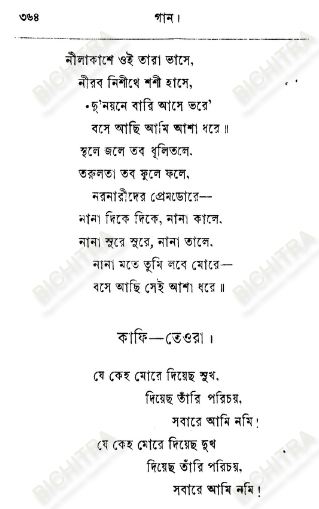 ৩৬৪
গান।
নীলাকাশে ওই তারা ভাসে,
নীরব নিশীথে শশী হাসে,
দু'নয়নে বারি আসে ভরে'
বসে আছি আমি আশা ধরে॥
স্থলে জলে তব ধূলিতলে,
তরুলতা তব ফুলে ফলে,
নরনারীদের প্রেমডোরে—
নানা দিকে দিকে, নানা কালে,
নানা সুরে সুরে, নানা তালে,
নানা মতে তুমি লবে মোরে—
বসে আছি সেই আশা ধরে॥
কাফি—তেওরা।
যে কেহ মোরে দিয়েছ সুখ,
দিয়েছ তাঁরি পরিচয়,
সবারে আমি নমি!
যে কেহ মোরে দিয়েছ দুখ
দিয়েছ তাঁরি পরিচয়,
সবারে আমি নমি!
BICHITRA